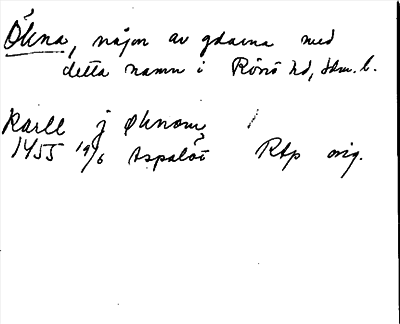 Ökna, någon av gdarna med
detta namn i Rönö hd, Sdm. l.
Karll j Øknom
1455 19/6 Aspaløt RAp orig.